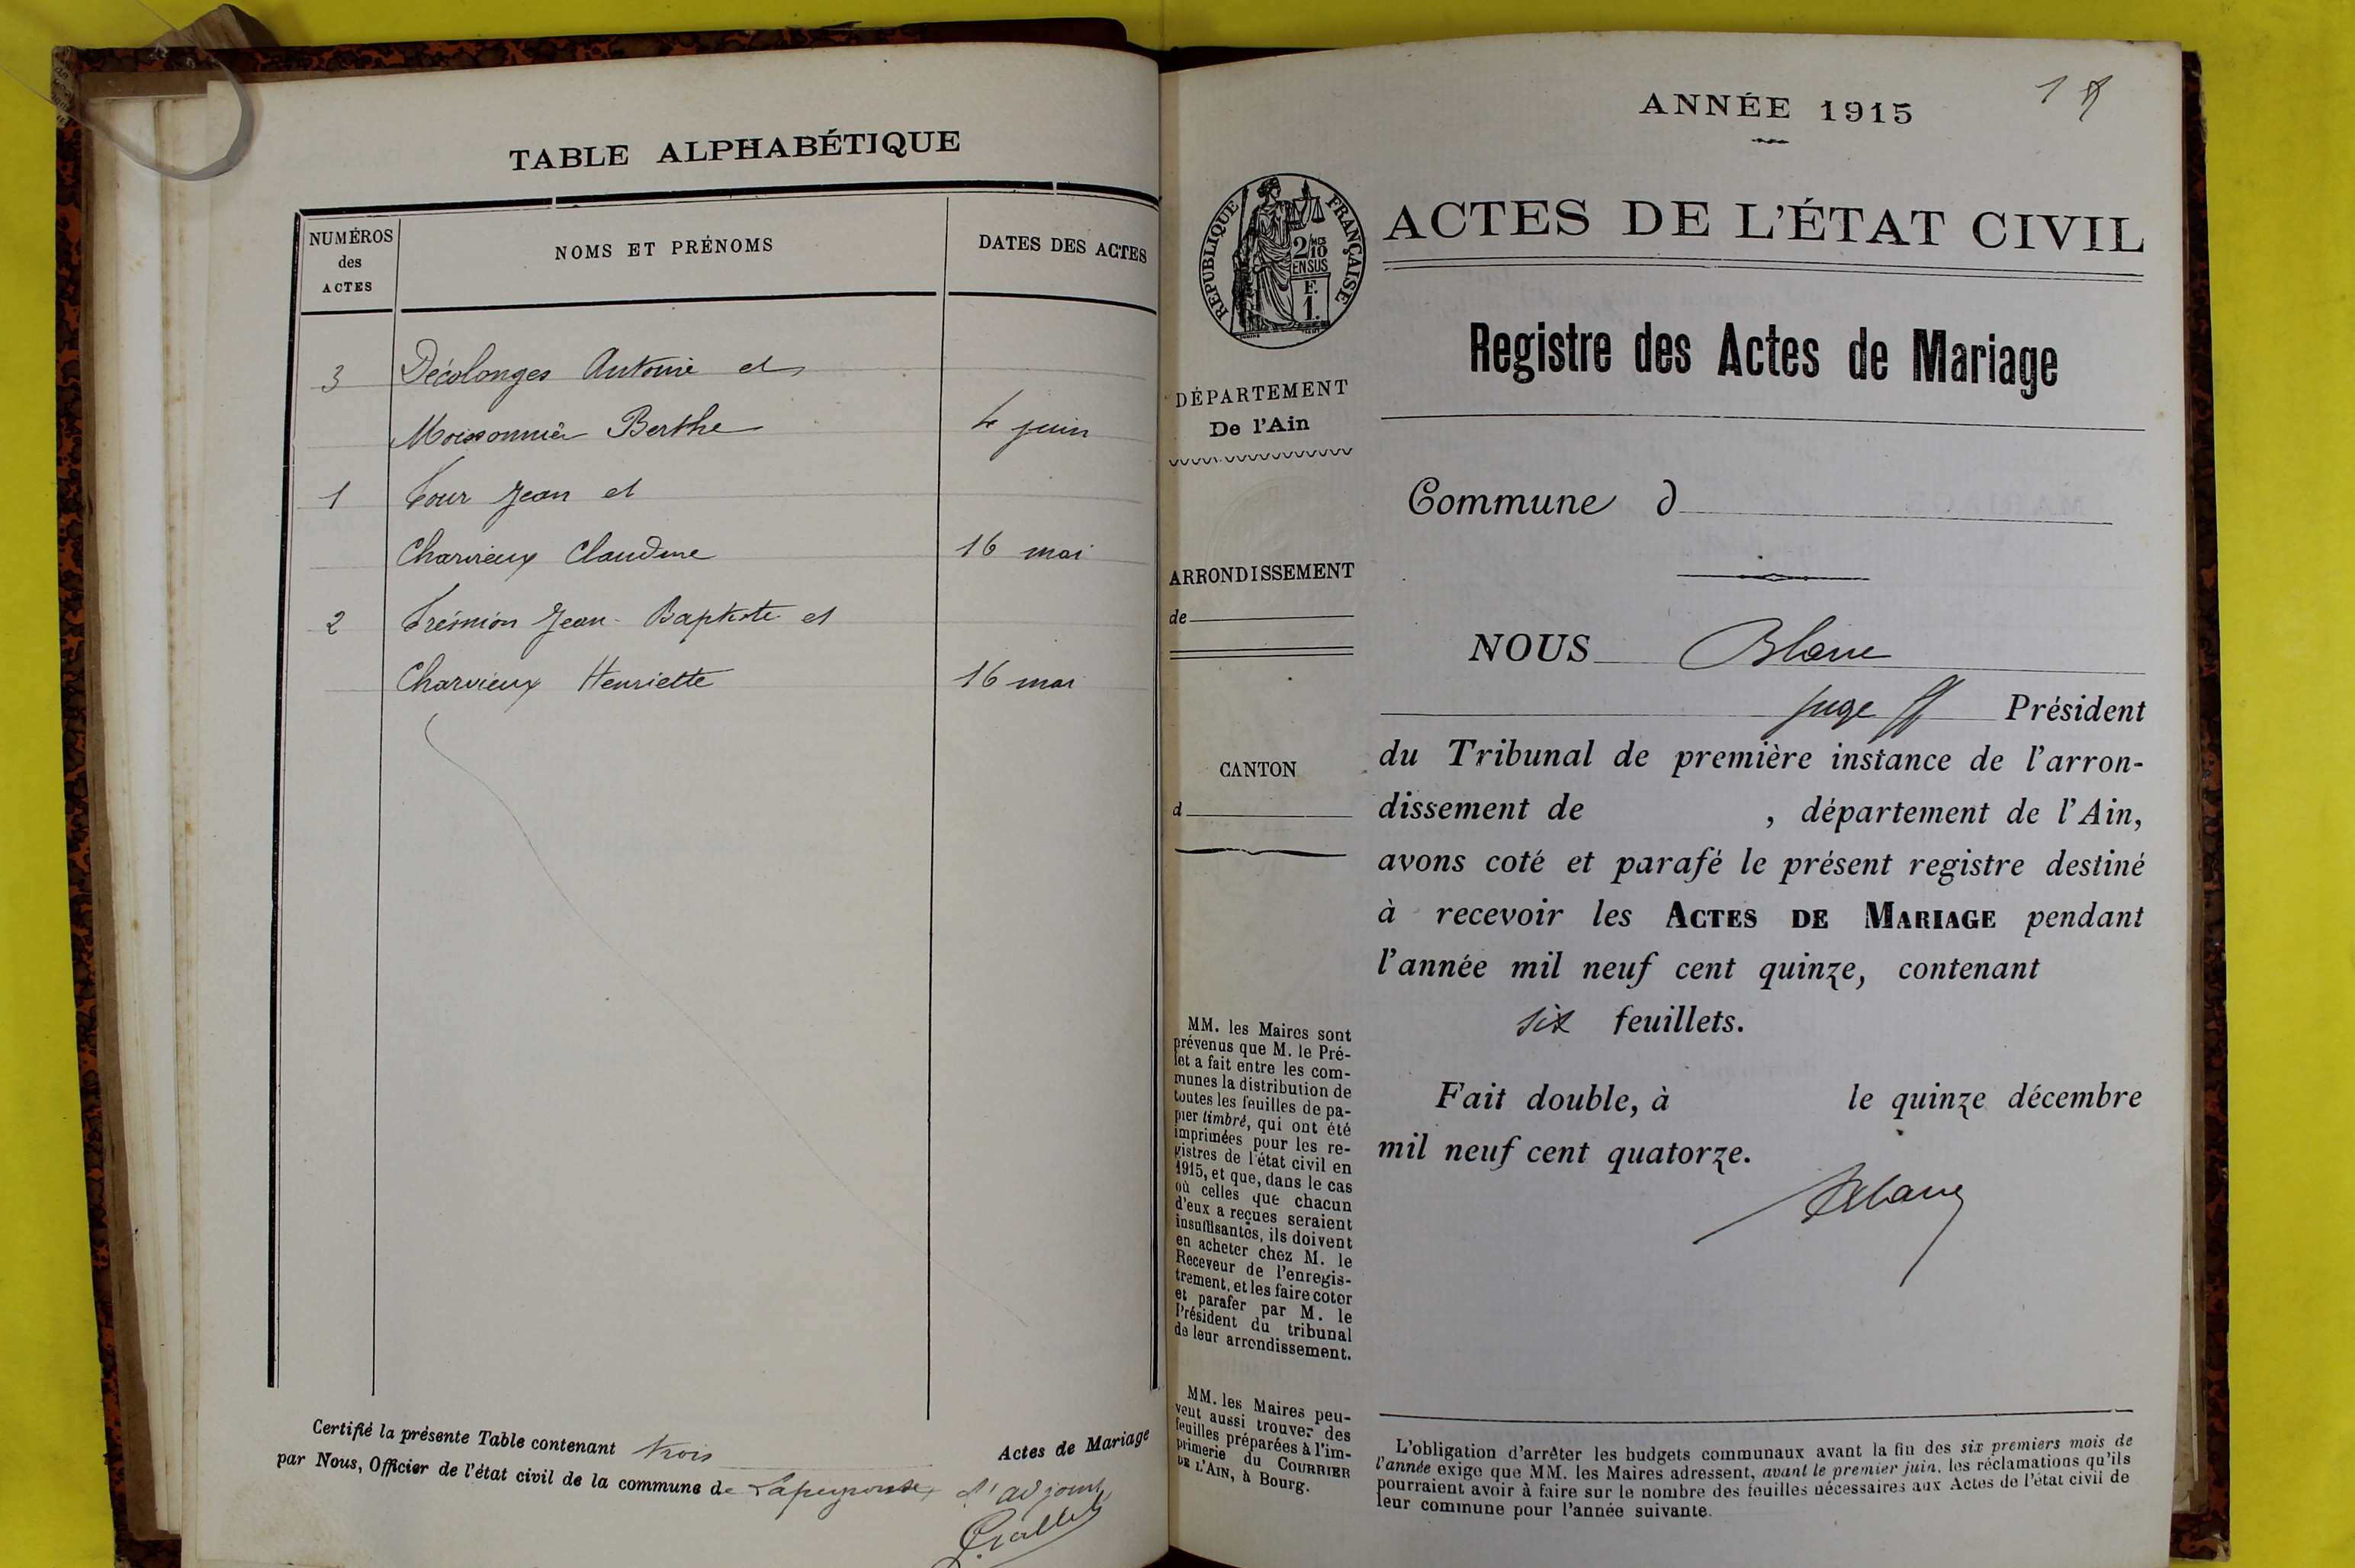 TABLE ALPHABÉTIQUE
NUMÉROS
des
ACTES
NOMS ET PRÉNOMS
DATES DES ACTES
3 Décolonges Antoine et
Moissonnier Berthe 4 juin
1 Tour Jean et
Charvieux Claudine 16 mai
2 Trémion Jean-Baptiste et
Charvieux Henriette 16 mai
Certifié la présente Table contenant trois Actes de Mariage
par Nous, Officier de l'état civil de la commune de Lapeyrouse, l'adjoint
1
ANNÉE 1915
RÉPUBLIQUE FRANÇAISE
2/10 MES
EN SUS
F.
1.
DÉPARTEMENT
De l'Ain
ARRONDISSEMENT
de
CANTON
d
MM. les Maires sont
prévenus que M. le Pré-
fet a fait entre les com-
munes la distribution de
toutes les feuilles de pa-
pier timbré, qui ont été
imprimées pour les re-
gistres de l'état civil en
1915, et que, dans le cas
où celles que chacun
d'eux a reçues seraient
insuffisantes, ils doivent
en acheter chez M. le
Receveur de l'enregis-
trement, et les faire coter
et parafer par M. le
Président du tribunal
de leur arrondissement.
MM. les Maires peu-
vent aussi trouver des
feuilles préparées à l'im-
primerie du COURRIER
DE L'AIN, à Bourg.
ACTES DE L'ÉTAT CIVIL
Registre des Actes de Mariage
Commune d
NOUS Blanc
juge ff Président
du Tribunal de première instance de l'arron-
dissement de , département de l'Ain,
avons coté et parafé le présent registre destiné
à recevoir les ACTES DE MARIAGE pendant
l'année mil neuf cent quinze, contenant
six feuillets.
Fait double, à le quinze décembre
mil neuf cent quatorze.
Blanc
L'obligation d'arrêter les budgets communaux avant la fin des six premiers mois de
l'année exige que MM. les Maires adressent, avant le premier juin, les réclamations qu'ils
pourraient avoir à faire sur le nombre des feuilles nécessaires aux Actes de l'état civil de
leur commune pour l'année suivante.